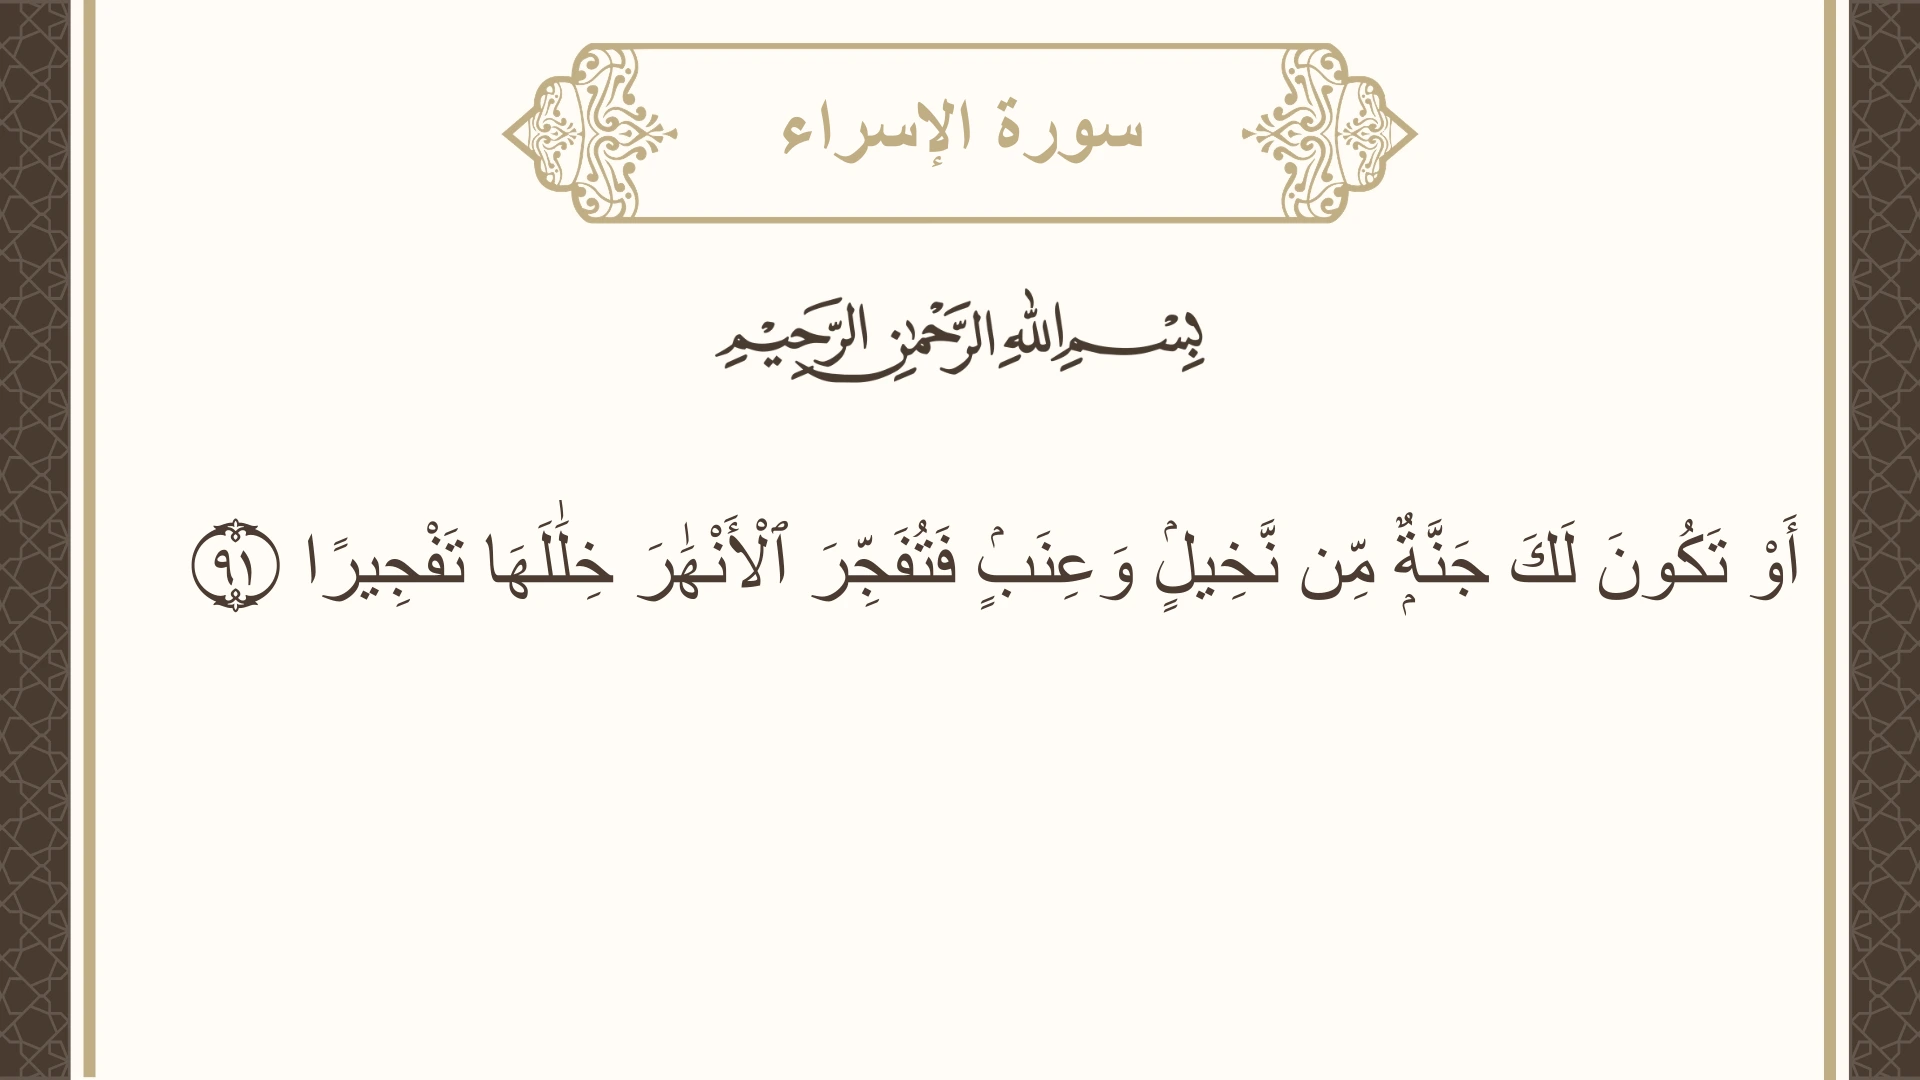 سورة الإسراء
بِسْمِ اللهِ الرَّحْمٰنِ الرَّحِيْمِ
أَوْ تَكُونَ لَكَ جَنَّةٌۭ مِّن نَّخِيلٍۢ وَعِنَبٍۢ فَتُفَجِّرَ ٱلْأَنْهَٰرَ خِلَٰلَهَا تَفْجِيرًا ٩١